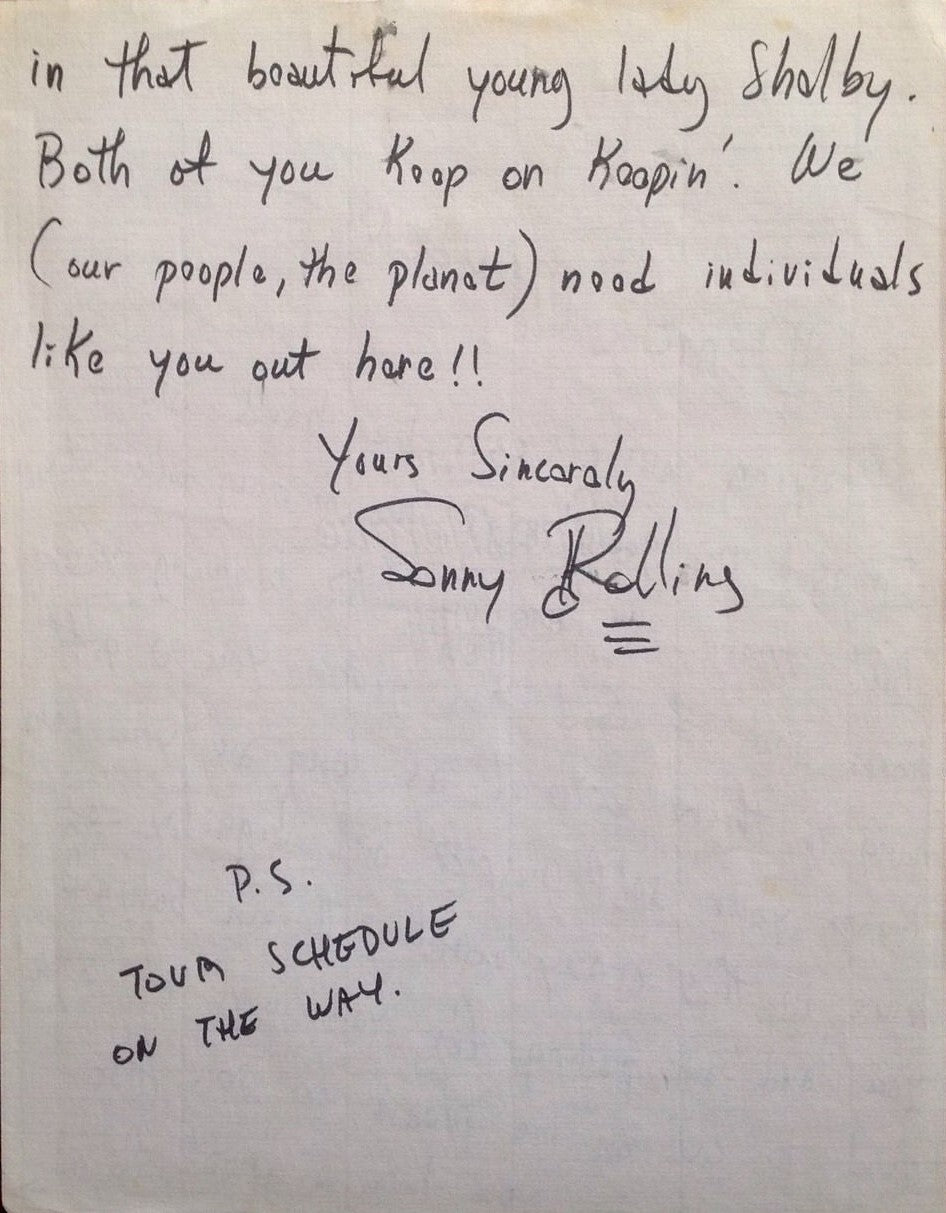 in that beautiful young lady Shelby.
Both of you Keep on Keepin'. We
(our people, the planet) need individuals
like you out here!!
Yours Sincerely
Sonny Rollins
P.S.
TOUR SCHEDULE
ON THE WAY.